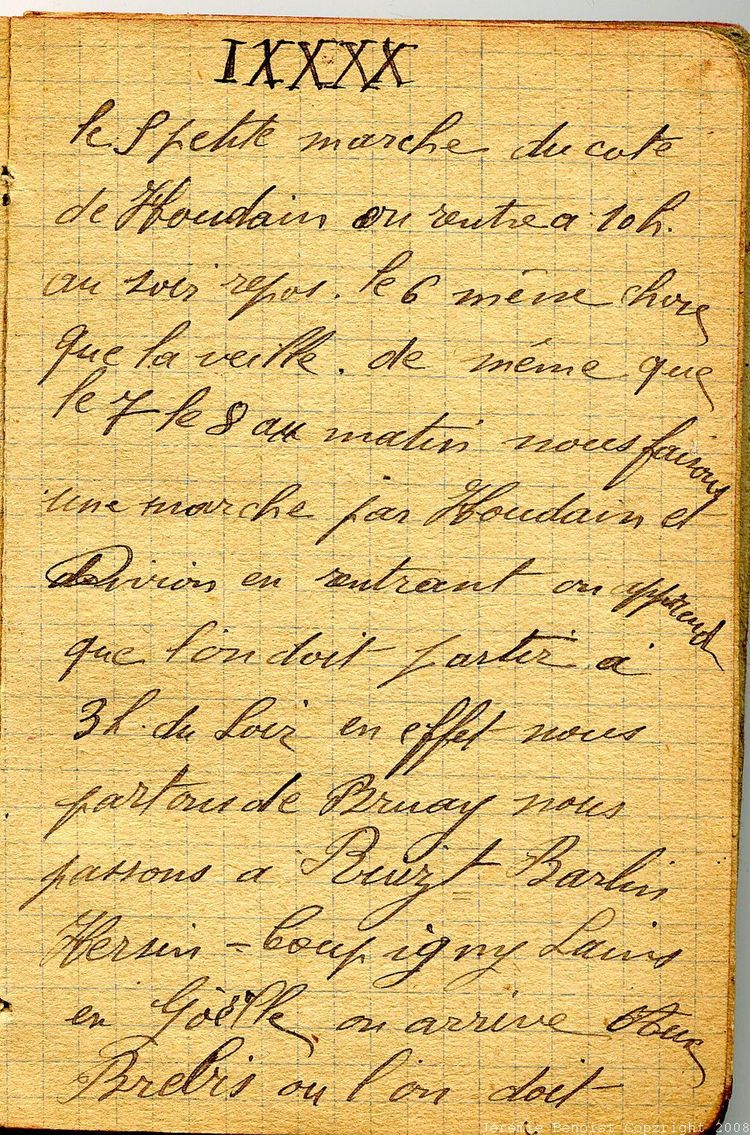 IXXXX
le 5 petite marche du coté
de Houdain on rentre a 10h.
au soir repos. le 6 même chose
que la veille. de même que
le 7 le 8 au matin nous faisons
une marche par Houdain et
Divion en rentrant on apprend
que l'on doit partir à
3h. du soir en effet nous
partons de Bruay nous
passons a Ruizt Barlin
Hersin = Coupigny Sains
en Goëlle on arrive aux
Brebis ou l'on doit
Jeremie Benoist Copyright 2008